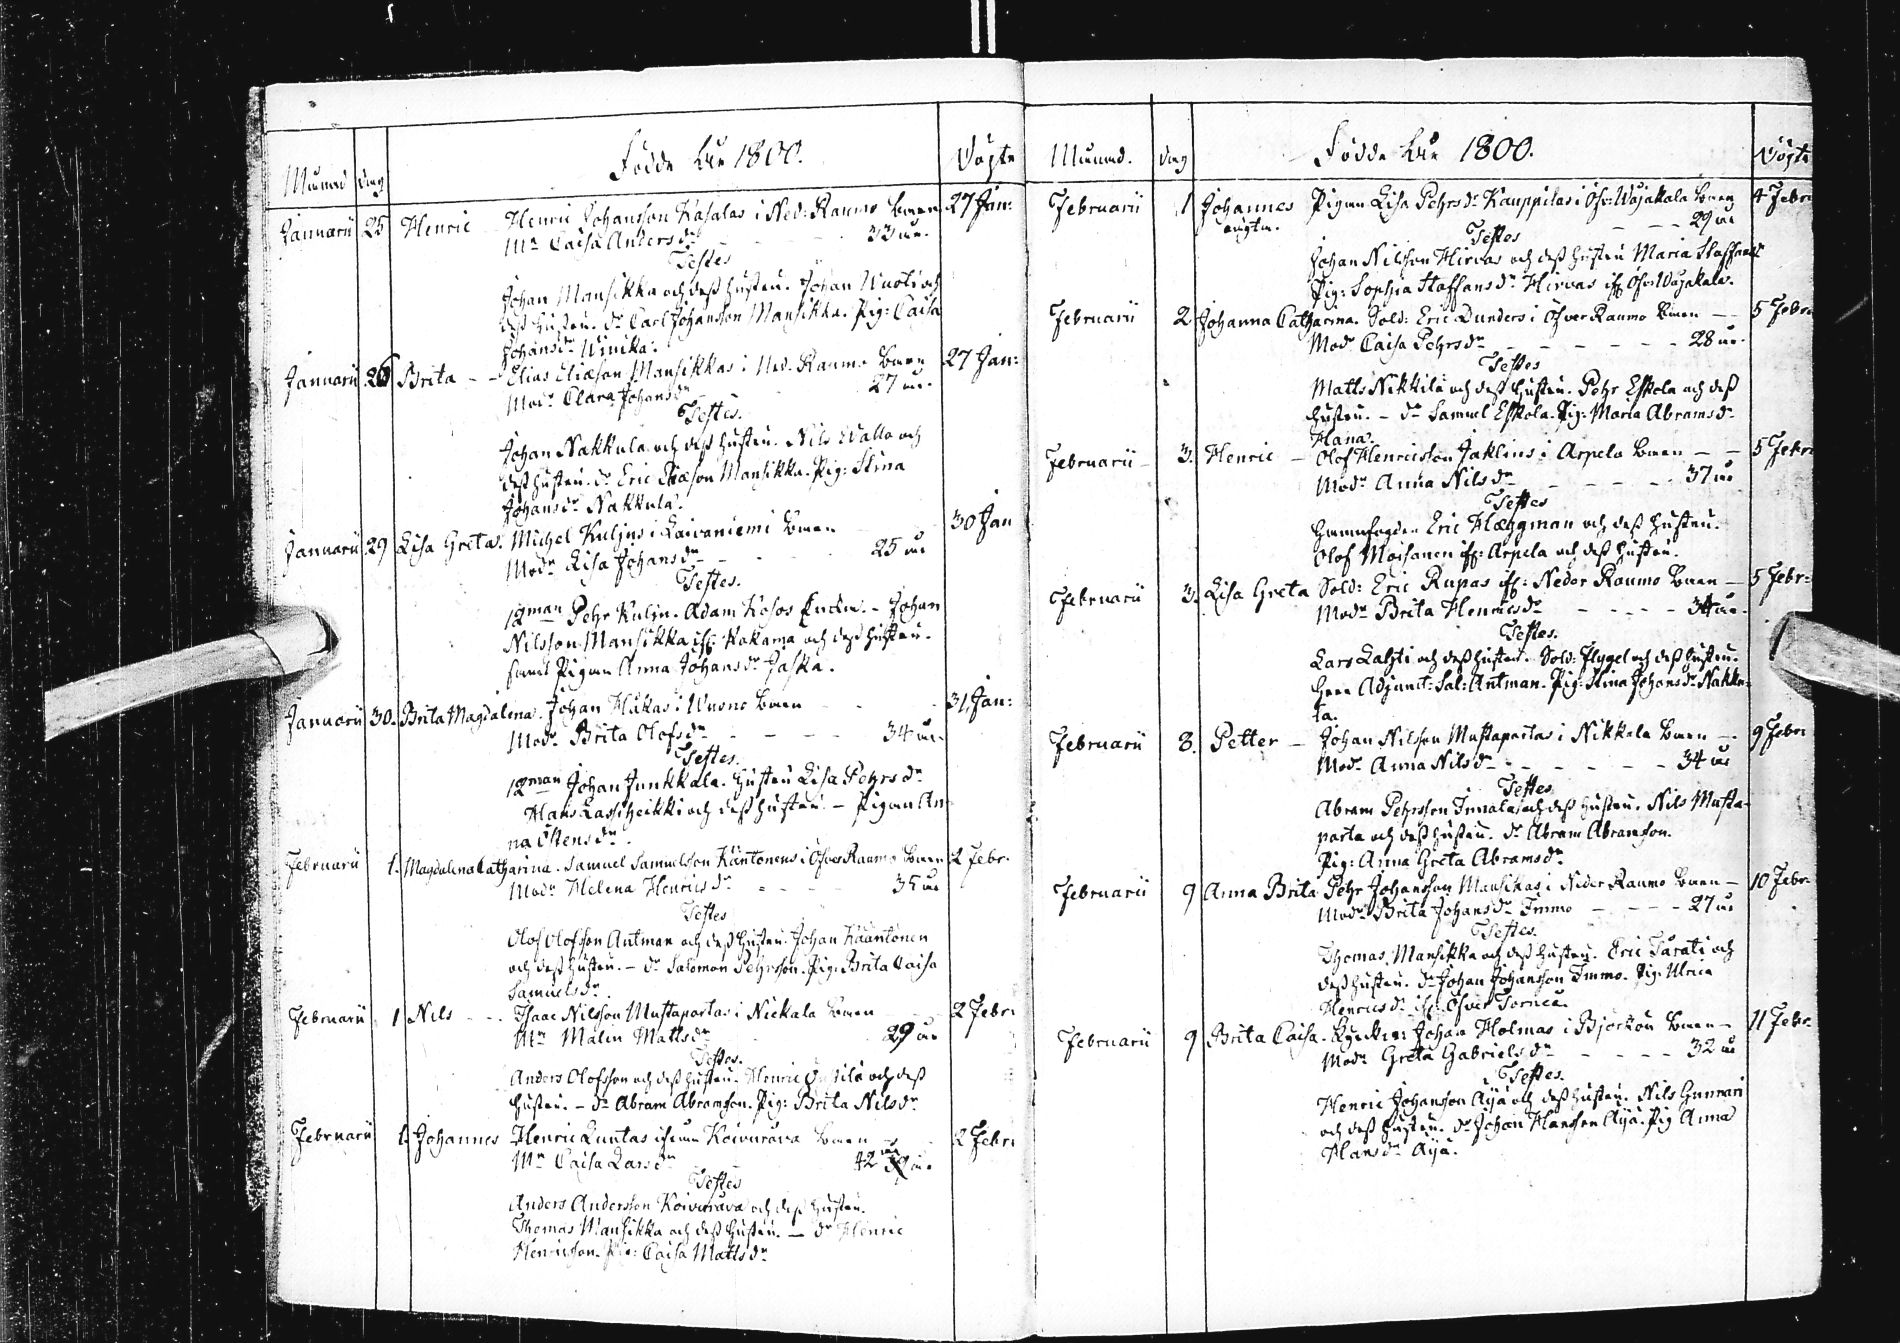 Månad dag Födde År 1800. Döpte
Januarii 25 Henric Henric Johansson Kasalas i Ned: Raumo Barn 27 Jan:
Mr Caisa Andersdr 33 år.
Testes
Johan Mansikka och dess hustru. Johan Nuoti och
dess hustru. dr Carl Johansson Mansikka. Pig: Caisa
Johansdr Winika.
Januarii 26 Brita Elias Eliæson Mansikkas i Ned. Raumo Barn 27 Jan:
Modr Clara Johansdr 27 år.
Testes.
Johan Nakkula och dess hustru. Nils Walto och
dess hustru. dr Eric Eliæson Mansikka. Pig: Stina
Johansdr Nakkula.
Januarii 29 Lisa Greta. Michel Kuljus i Laivaniemi Barn 30 Jan
Modr Lisa Johansdr 25 år
Testes.
12man Pehr Kuljn. Adam Kosos. Johan
Nilsson Mansikka if: Kakama och dess hustru.
samt Pigan Anna Johansdr Jaska.
Januarii 30. Brita Magdalena. Johan Hukas i Wuono Barn 31 Jan:
Modr Brita Olofsdr 34 år.
Testes.
12man Johan Junkkala. hustru Lisa Pehrsdr
Hans Lassiheikki och dess hustru. Pigan An-
na Östensdr.
Februarii 1. Magdalena Catharina. Samuel Samuelsson Käntonens i Öfver Raumo Barn 2 Febr.
Modr Helena Henricsdr 35 år
Testes
Olof Olofsson Antman och dess hustru. Johan Kääntönen
och dess hustru. dr Salomon Pehrsson. Pig: Brita Caisa
Samuelsdr.
Februarii 1 Nils Isaac Nilsson Mustapartas i Nickala Barn 2 Febr:
Mr Malin Mattsdr 29 år
Testes.
Anders Olofsson och dess hustru. Henric och dess
hustru. dr Abram Abramsson. Pig: Brita Nilsdr
Februarii 1. Johannes Henric Luntas ifrån Koivurova Barn 2 Febr:
Mr Caisa Larsdr 42 år
Testes
Anders Andersson Koivurova och dess hustru.
Thomas Mansikka och dess hustru. dr Henric
Henricsson. Pig: Caisa Mattsdr
Månad. dag Födde År 1800. Döpte
Februarii 1 Johannes Pigan Lisa Pehrsdr Kauppilas i Öfv: Wojakala Barn 4 Febr:
oägta. 29 år
Testes
Johan Nilsson Hirvas och dess hustru Maria Staffansdr
Pig: Sophia Staffansdr Hirvas if: Öfv: Wojakala.
Februarii 2 Johanna Catharina. Sold: Eric Dunders i Öfver Raumo Barn 5 Febr:
Modr Caisa Pehrsdr 28 år.
Testes
Matts Nikkilä och dess hustru. Pehr Eskola och dess
hustru. dr Samuel Eskola. Pig: Maria Abramsdr
Hana.
Februarii 3. Henric Olof Henricsson Jaklins i Arpela Barn 5 Febr:
Modr Anna Nilsdr 37 år
Testes
Eric Hæggman och dess hustru.
Olof Moisanen if: Arpela och dess hustru.
Februarii 3. Lisa Greta Sold: Eric Rupas if: Neder Raumo Barn 5 Febr:
Modr Brita Henricsdr 34 år.
Testes.
Lars Lahti och dess hustru. Sold: Flygel och dess hustru.
Herr Adjunct: Sal: Antman. Pig: Stina Johansdr Nakku-
la.
Februarii 8. Petter Johan Nilsson Mustapartas i Nikkala Barn 9 Febr:
Modr Anna Nilsdr 34 år
Testes
Abram Pehrsson Innala och dess hustru. Nils Musta-
parta och dess hustru. dr Abram Abramsson.
Pig: Anna Greta Abramsdr
Februarii 9 Anna Brita Pehr Johansson Mansikas i Neder Raumo Barn 10 Febr:
Modr Brita Johansdr Immo 27 år
Testes.
Thomas Mansikka och dess hustru. Eric Turati och
dess hustru. dr Johan Johansson Immo. Pig: Ulrica
Henricsdr if: Öfver Tornea.
Februarii 9 Brita Caisa. Johan Holmas i Björkön Barn 11 Febr:
Modr Greta Gabrielsdr 32 år
Testes.
Henric Johansson Äijä och dess hustru. Nils Gunnari
och dess hustru. dr Johan Hansson Äijä. Pig Anna
Hansdr Äijä.